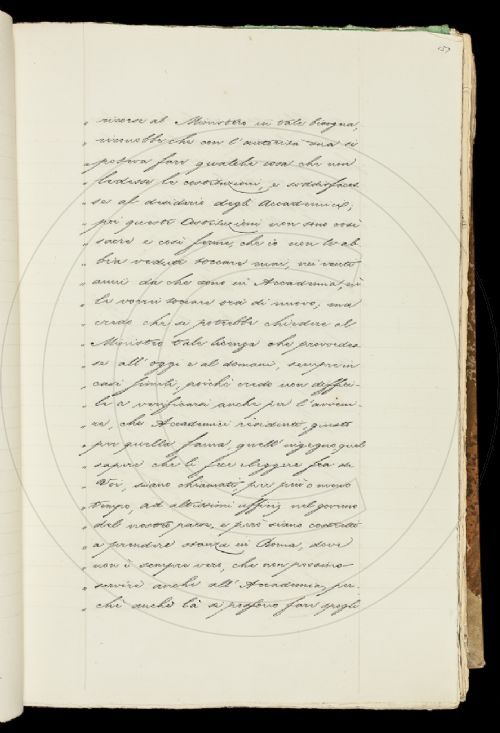 157
" ricorse al Ministro in tale bisogna,
" riconobbe che con l'autorità sua si
" poteva fare qualche cosa che non
" ledesse le costituzioni, e soddisfaces
" se al desiderio degli Accademici;
" poi queste Costituzioni non sono così
" sacre e così ferme, che io non le ab
" bia veduto toccare mai, nei venti
" anni da che sono in Accademia,
" le vorrei toccare ora di nuovo; ma
" credo che si potrebbe chiedere al
" Ministro tale licenza che provvedes
" se all'oggi e al domani, sempre in
" casi simili, poichè credo non diffici
" le a verificarsi anche per l'avveni
" re, che Accademici residenti, giusto
" per quella fama, quell'ingegno quel
" sapere che li fece eleggere fra di
" Voi, siano chiamati per più o meno
" tempo, ad altissimi uffici nel governo
" del nostro paese, e però siano costretti
" a prendere stanza in Roma, dove
" non è sempre vero, che non possino
" servire anche all'Accademia, per
" chè anche là si possono fare spogli